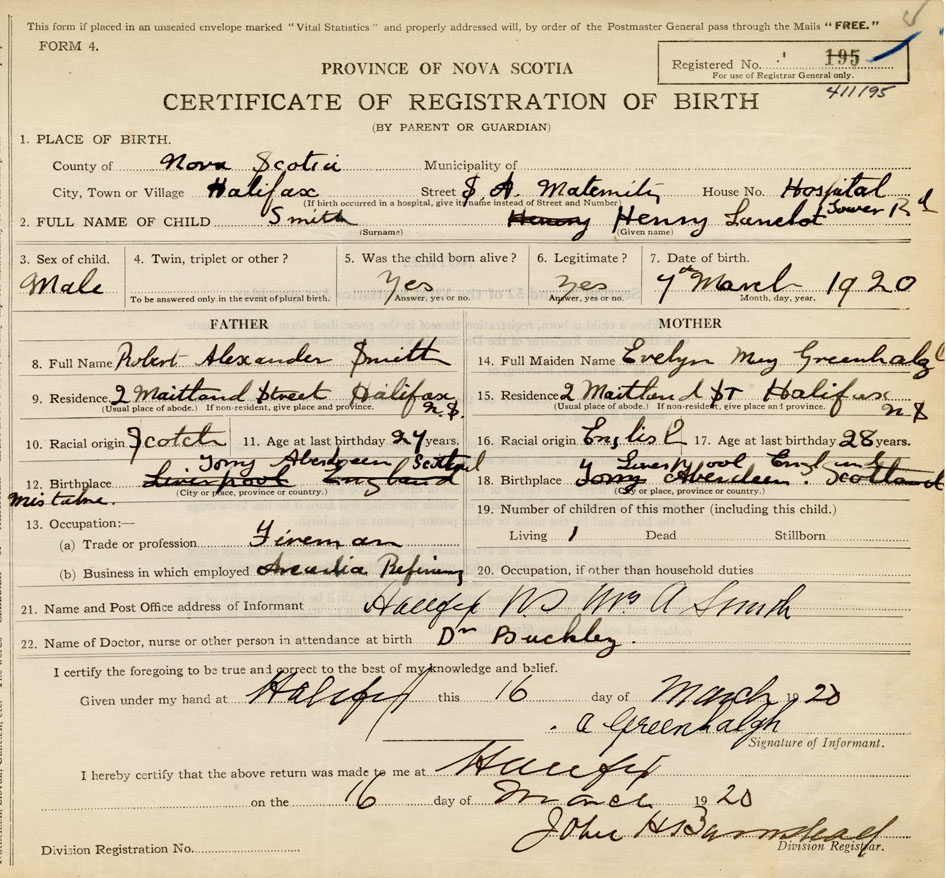 This form if placed in an unsealed envelope marked "Vital Statistics" and properly addressed will, by order of the Postmaster General pass through the Mails "FREE."
FORM 4.
Registered No. 195
For use of Registrar General only.
411195
PROVINCE OF NOVA SCOTIA
CERTIFICATE OF REGISTRATION OF BIRTH
(BY PARENT OR GUARDIAN)
1. PLACE OF BIRTH.
County of Nova Scotia Municipality of
City, Town or Village Halifax Street S. A. Maternity House No. Hospital
(If birth occurred in a hospital, give its name instead of Street and Number) Tower Rd
2. FULL NAME OF CHILD Smith Henry Henry Lanclot
(Surname) (Given name)
3. Sex of child. 4. Twin, triplet or other? 5. Was the child born alive? 6. Legitimate? 7. Date of birth.
Male Yes Yes 7th March 1920
To be answered only in the event of plural birth. Answer, yes or no. Answer, yes or no. Month, day, year.
FATHER
8. Full Name Robert Alexander Smith
9. Residence 2 Maitland Street Halifax N.S.
(Usual place of abode.) If non-resident, give place and province.
10. Racial origin Scotch 11. Age at last birthday 27 years.
Torry Aberdeen Scotland
12. Birthplace Liverpool England
(City or place, province or country.)
mistake.
13. Occupation:—
(a) Trade or profession Fireman
(b) Business in which employed Arcadia Refining
MOTHER
14. Full Maiden Name Evelyn May Greenhalgh
15. Residence 2 Maitland ST Halifax N S
(Usual place of abode.) If non-resident, give place and province.
16. Racial origin English 17. Age at last birthday 28 years.
Liverpool England
18. Birthplace Torry Aberdeen. Scotland
(City or place, province or country.)
19. Number of children of this mother (including this child.)
Living 1 Dead Stillborn
20. Occupation, if other than household duties
21. Name and Post Office address of Informant Halifax NS Mrs A Smith
22. Name of Doctor, nurse or other person in attendance at birth Dr Buckley.
I certify the foregoing to be true and correct to the best of my knowledge and belief.
Given under my hand at Halifax this 16 day of March 1920
A Greenhalgh
Signature of Informant.
I hereby certify that the above return was made to me at Halifax
on the 16 day of March 1920
John H Barnstead
Division Registrar.
Division Registration No.